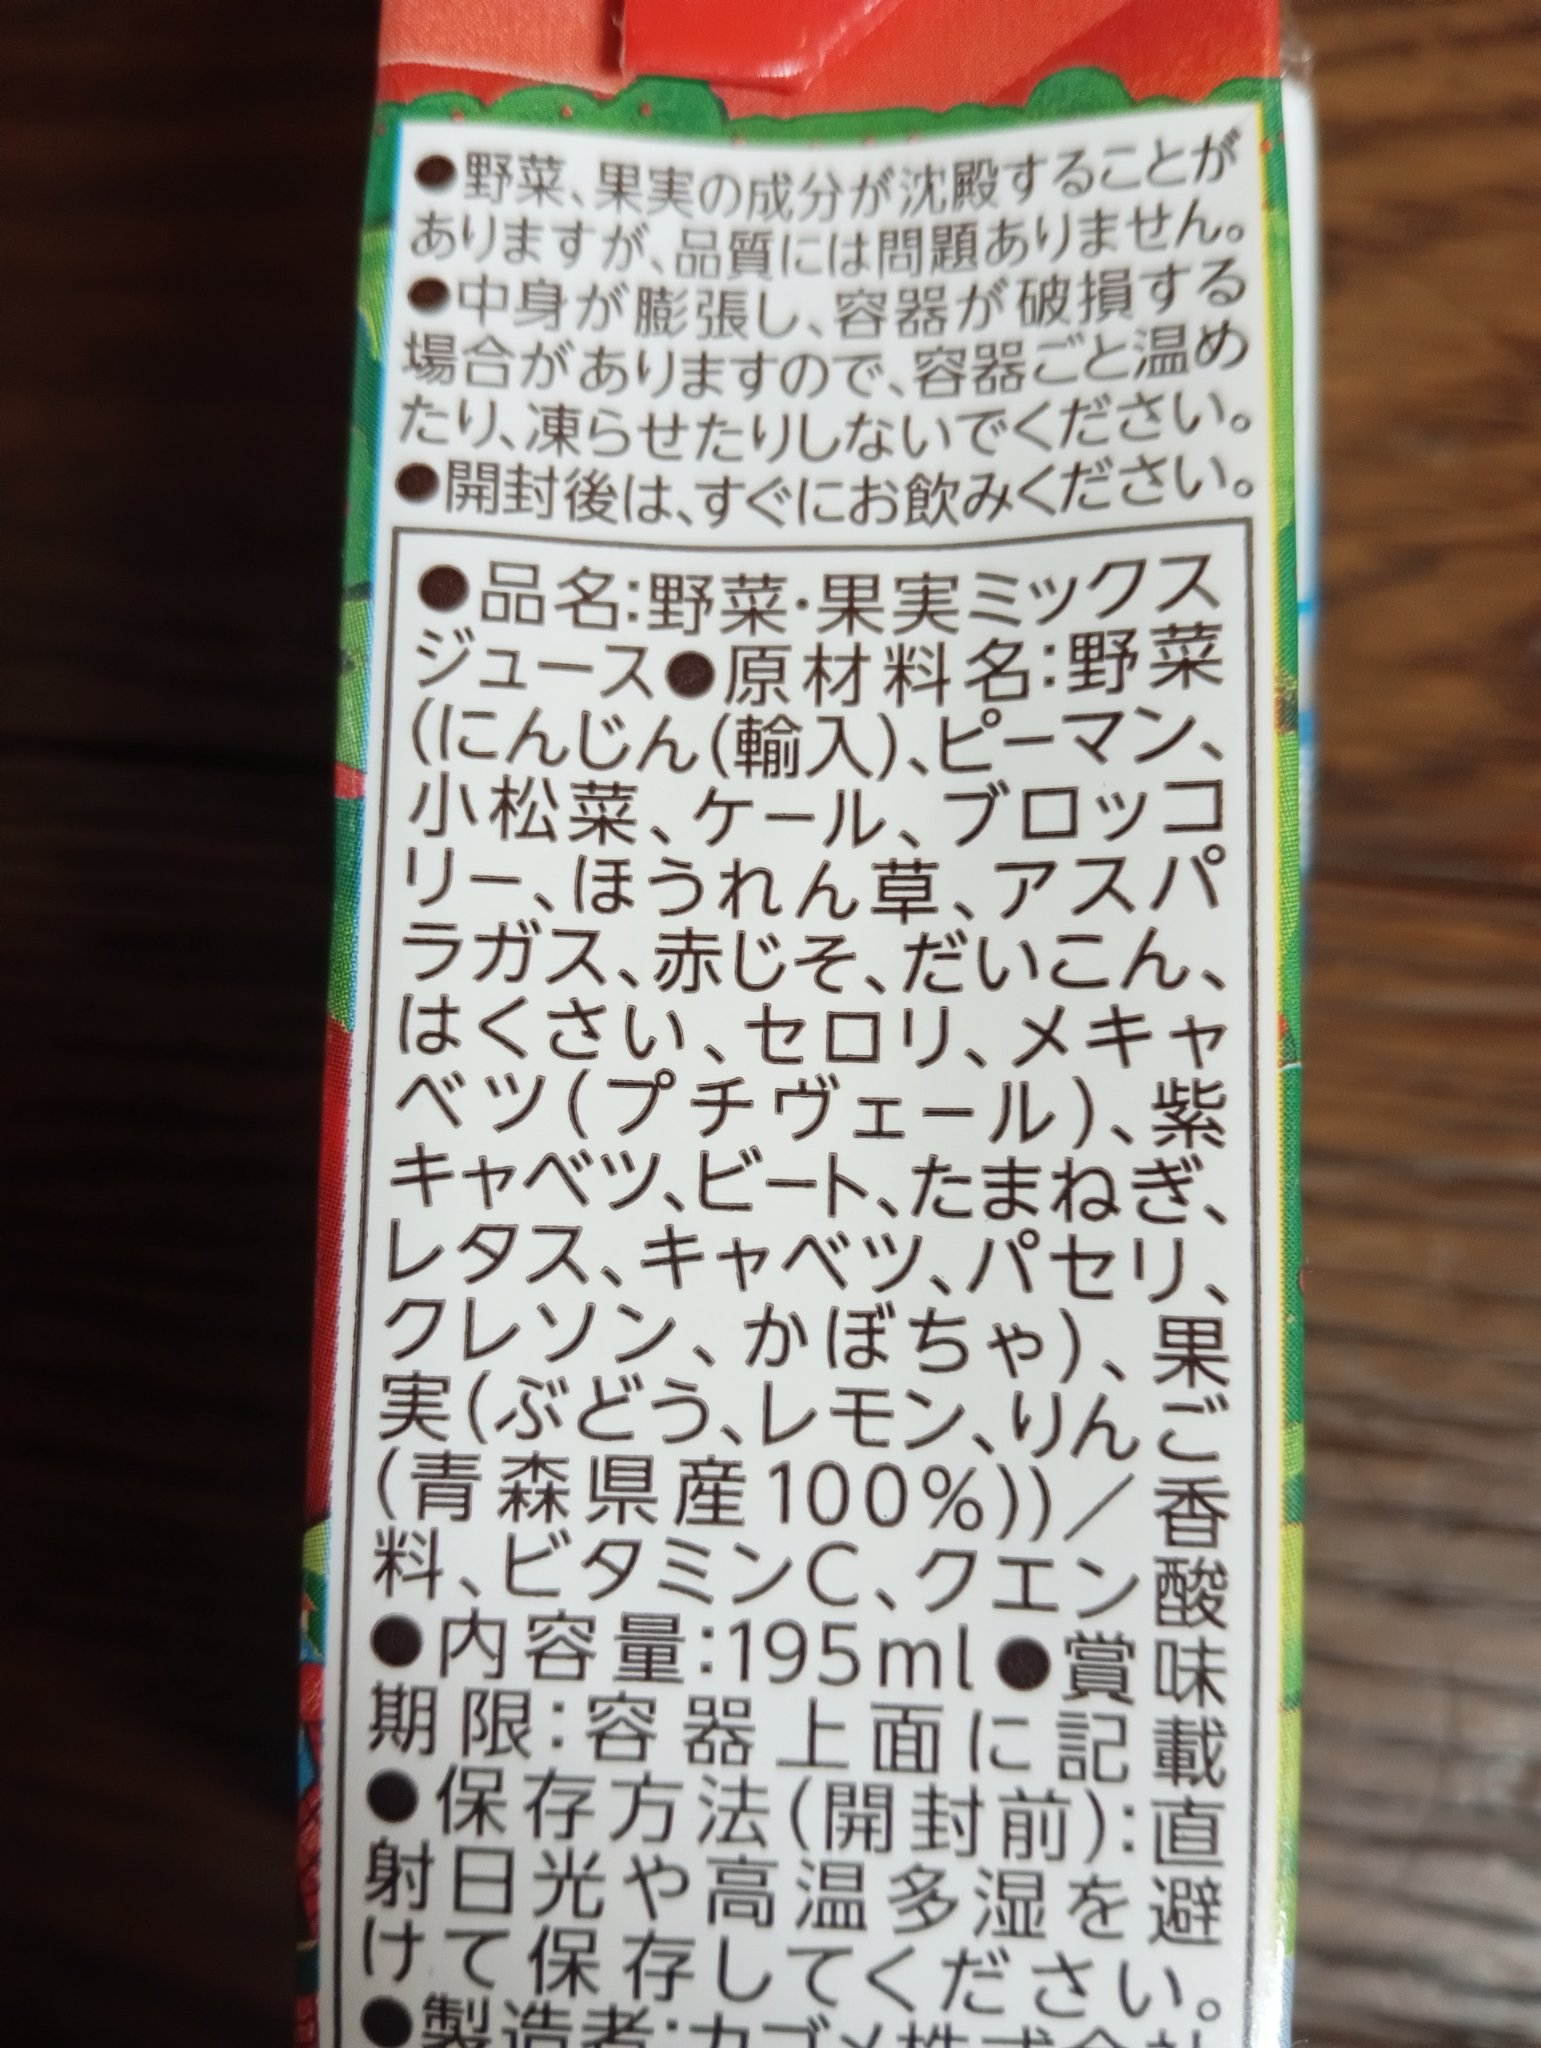 ●野菜、果実の成分が沈殿することが
ありますが、品質には問題ありません。
●中身が膨張し、容器が破損する
場合がありますので、容器ごと温め
たり、凍らせたりしないでください。
●開封後は、すぐにお飲みください。
●品名:野菜・果実ミックス
ジュース●原材料名:野菜
(にんじん(輸入)、ピーマン、
小松菜、ケール、ブロッコ
リー、ほうれん草、アスパ
ラガス、赤じそ、だいこん、
はくさい、セロリ、メキャ
ベツ(プチヴェール)、紫
キャベツ、ビート、たまねぎ、
レタス、キャベツ、パセリ、
クレソン、かぼちゃ)、果
実(ぶどう、レモン、りんご
(青森県産100%))/香
料、ビタミンC、クエン酸
●内容量:195ml●賞味
期限:容器上面に記載
●保存方法(開封前):直
射日光や高温多湿を避
けて保存してください。
●製造者:カゴメ株式会社